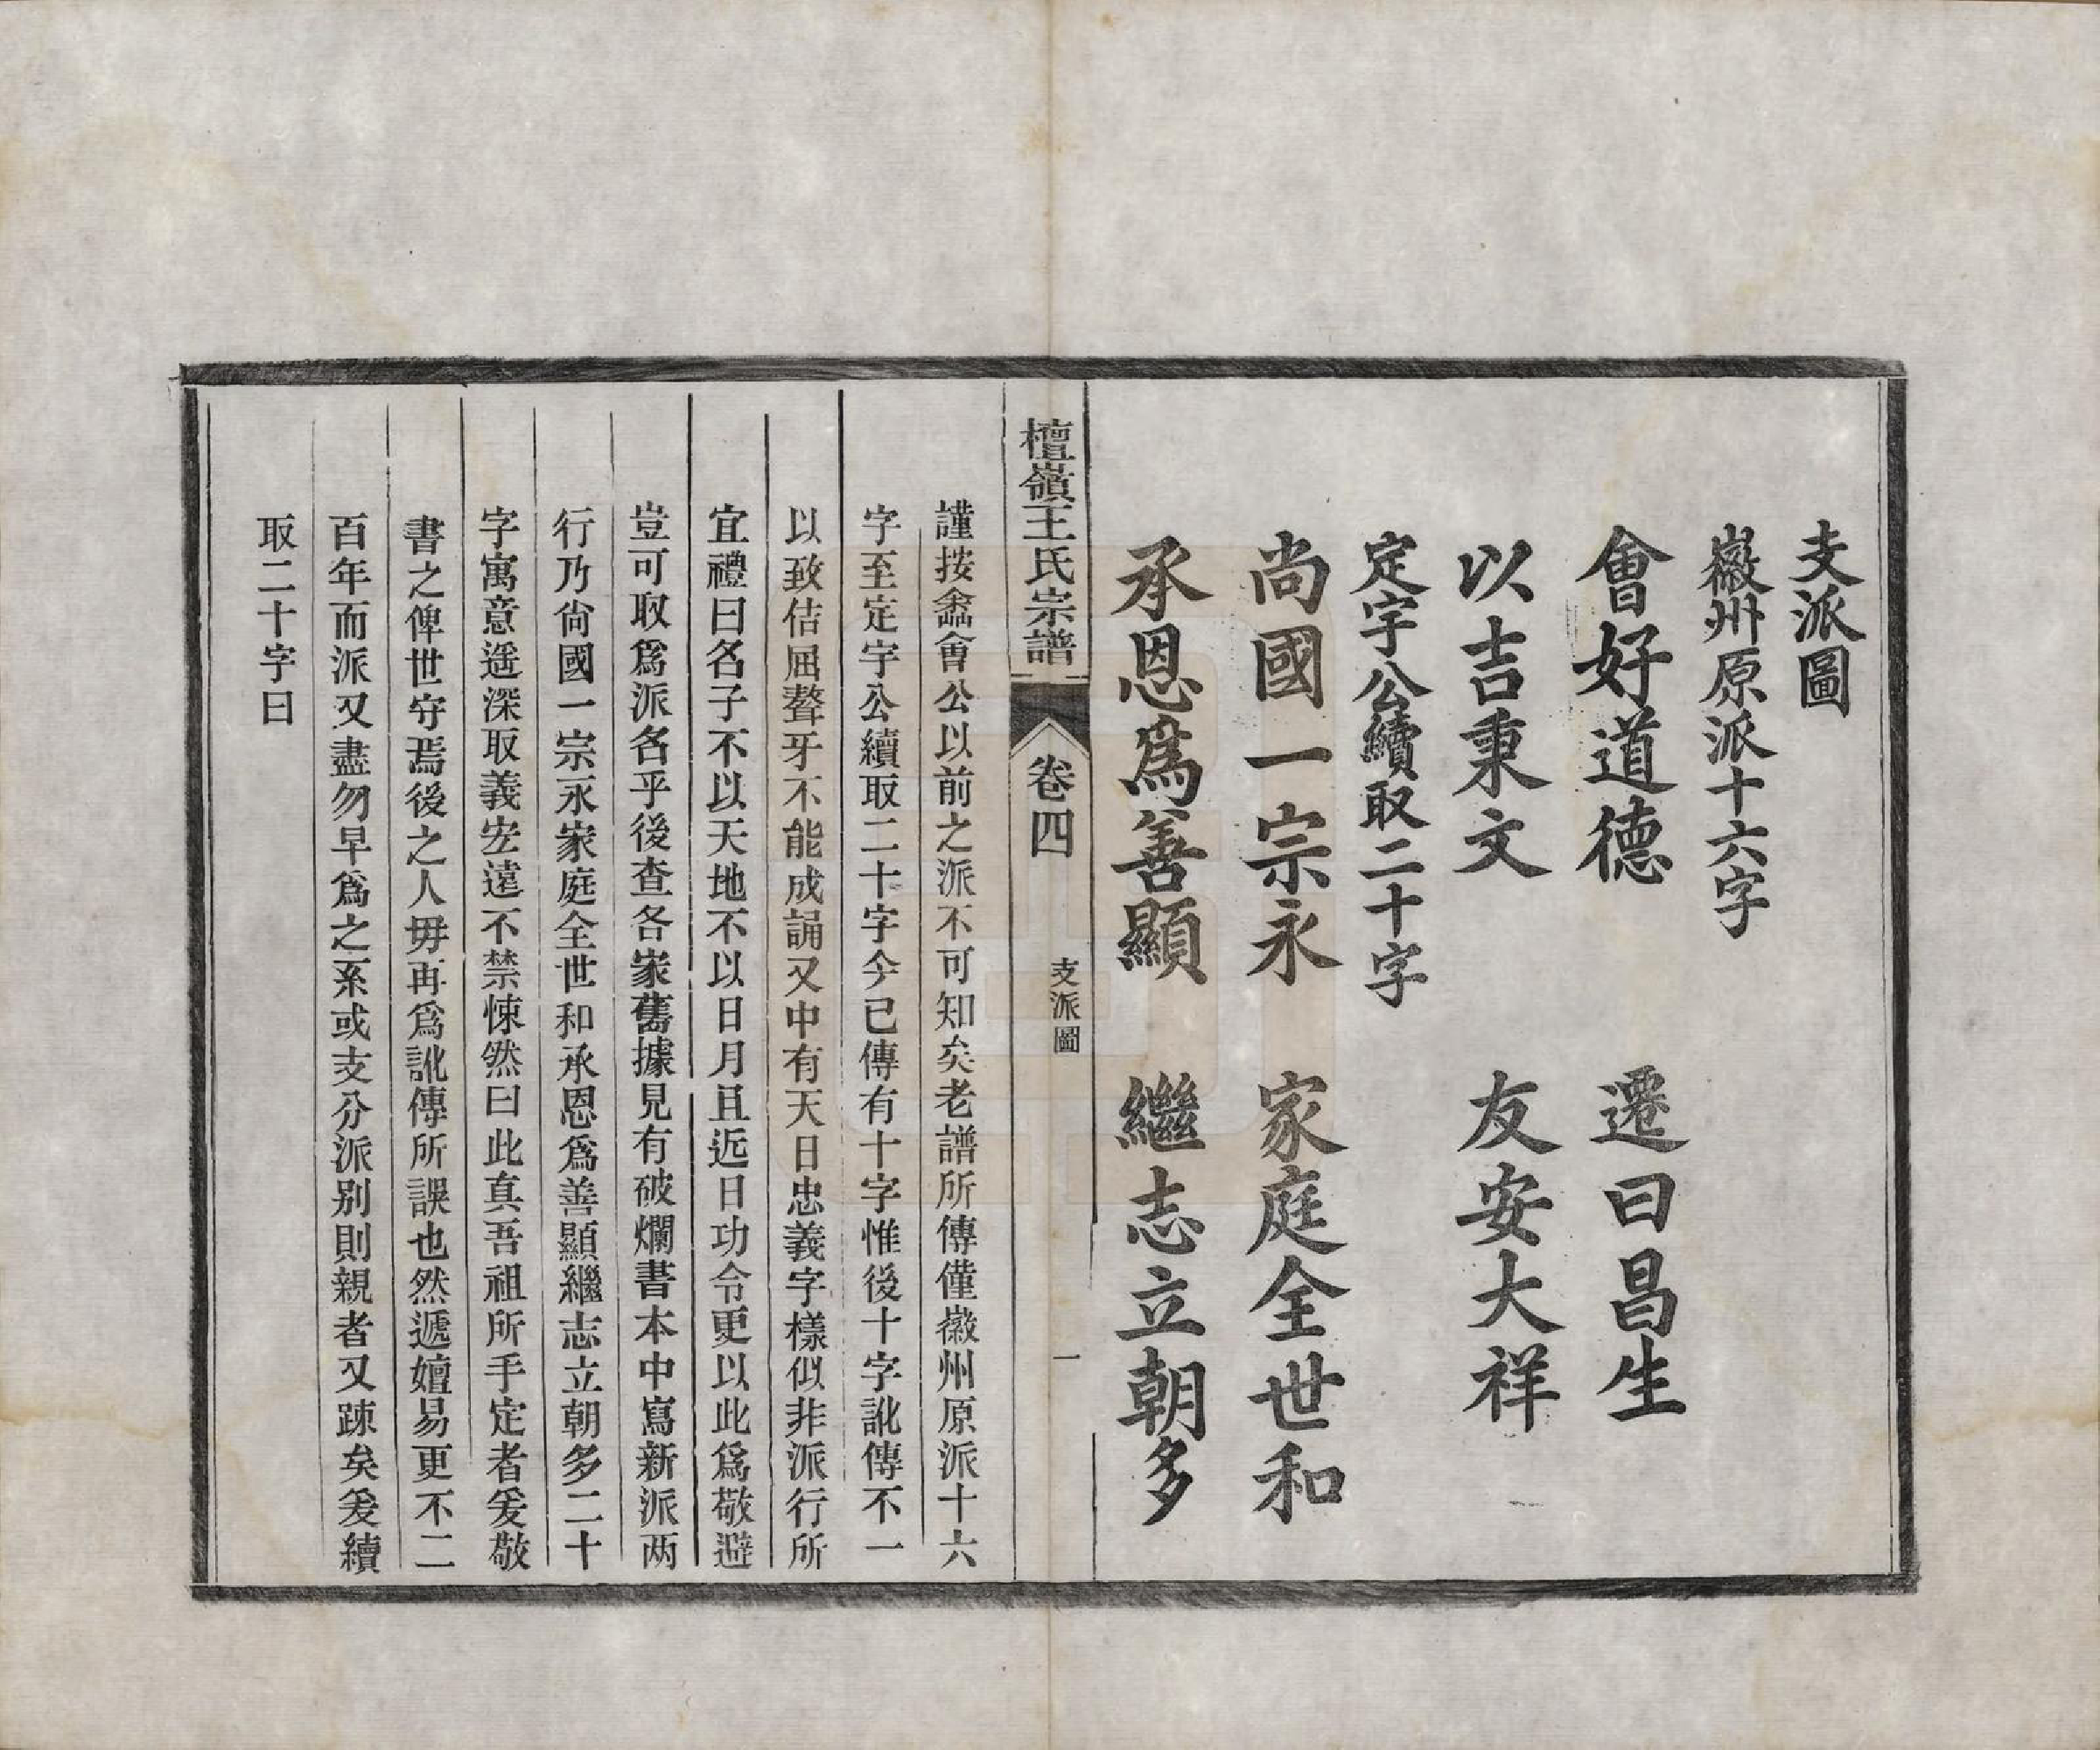 支派圖
徽州原派十六字
會好道德　遷曰昌生
以吉秉文　友安大祥
定宇公續取二十字
尚國一宗永　家庭全世和
承恩爲善顯　繼志立朝多
檀嶺王氏宗譜　卷四　支派圖　一
謹按會公以前之派不可知矣老譜所傳僅徽州原派十六
字至定宇公續取二十字今已傳有十字惟後十字訛傳不一
以致佶屈聱牙不能成誦又中有天日忠義字樣似非派行所
宜禮曰名子不以天地不以日月且近日功令更以此爲敬避
豈可取爲派名乎後查各家舊據見有破爛書本中寫新派两
行乃尙國一宗永家庭全世和承恩爲善顯繼志立朝多二十
字寓意遥深取義宏遠不禁悚然曰此真吾祖所手定者爰敬
書之俾世守焉後之人毋再爲訛傳所誤也然遞嬗易更不二
百年而派又盡勿早爲之系或支分派别則親者又踈矣爰續
取二十字曰